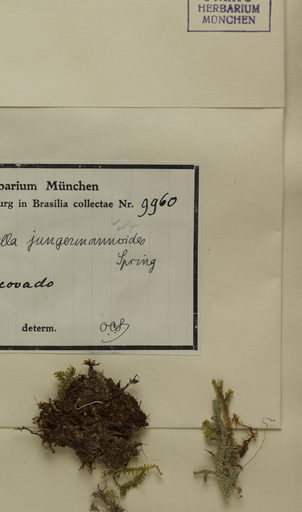 HERBARIUM
MÜNCHEN
barium München
urg in Brasilia collectae Nr. 9960
ella jungermannioides
Spring
covado
determ.